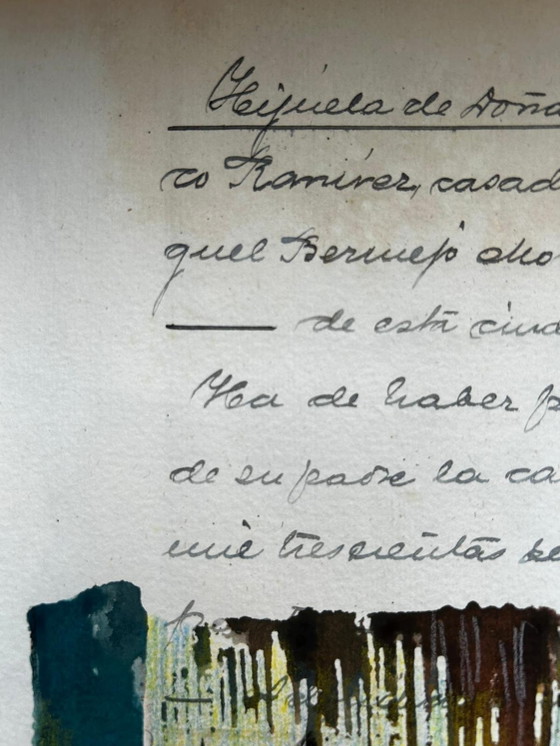 Hijuela de Doña
co Ramirez, casad
guel Bermejo
de esta ciud
Ha de haber p
de su padre la ca
mil trescientas se